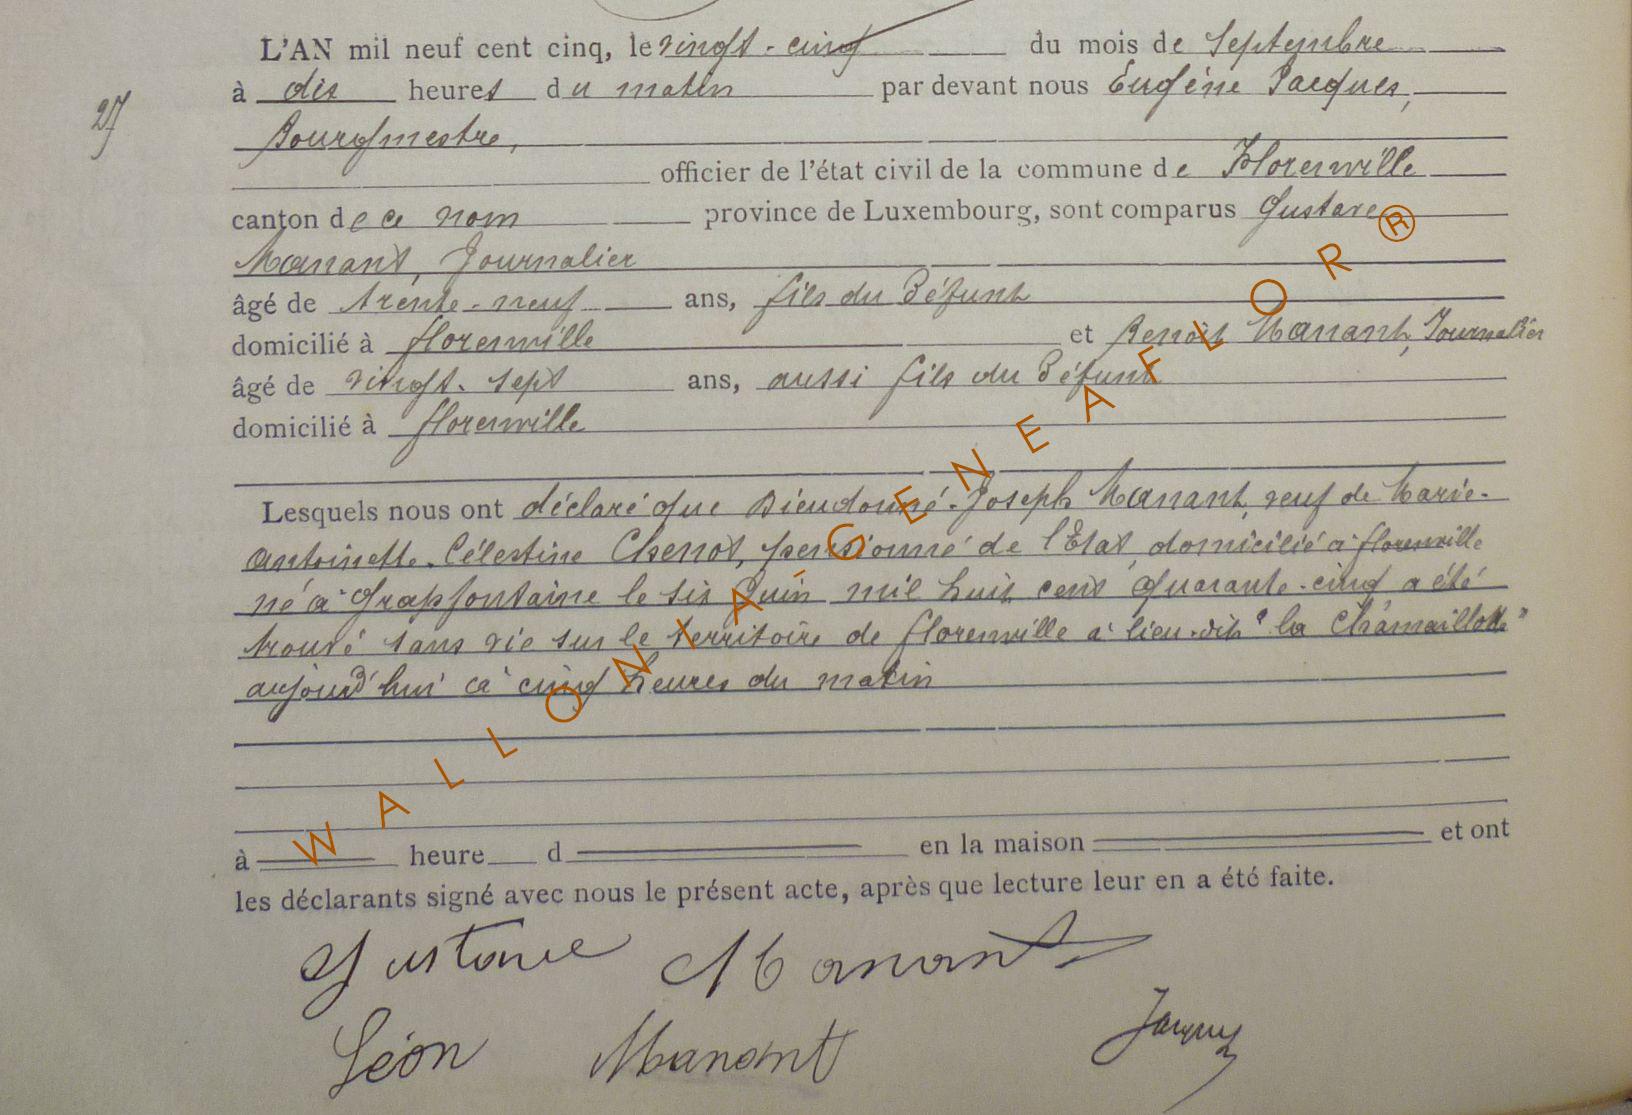 L'AN mil neuf cent cinq, le vingt-cinq du mois de Septembre
à dix heures du matin par devant nous Eugène Jacques,
27
Bourgmestre,
officier de l'état civil de la commune de Florenville
canton de ce nom province de Luxembourg, sont comparus Gustave
Manant, Journalier
âgé de trente-neuf ans, fils du Défunt
domicilié à florenville et Benoit Manant, Journalier
âgé de vingt-sept ans, aussi fils du Défunt
domicilié à florenville
Lesquels nous ont déclaré que Dieudonné-Joseph Manant, veuf de Marie-
Antoinette-Célestine Chenot, pensionné de l'Etat, domicilié à florenville
né à Grapfontaine le six Juin mil huit cent quarante-cinq a été
trouvé sans vie sur le territoire de florenville à lieu-dit "la Chamaillotte"
aujourd'hui à cinq heures du matin
à heure d en la maison et ont
les déclarants signé avec nous le présent acte, après que lecture leur en a été faite.
Gustave Manant
Léon Manant Jacques
WALLONIA-GENEAFLOR®